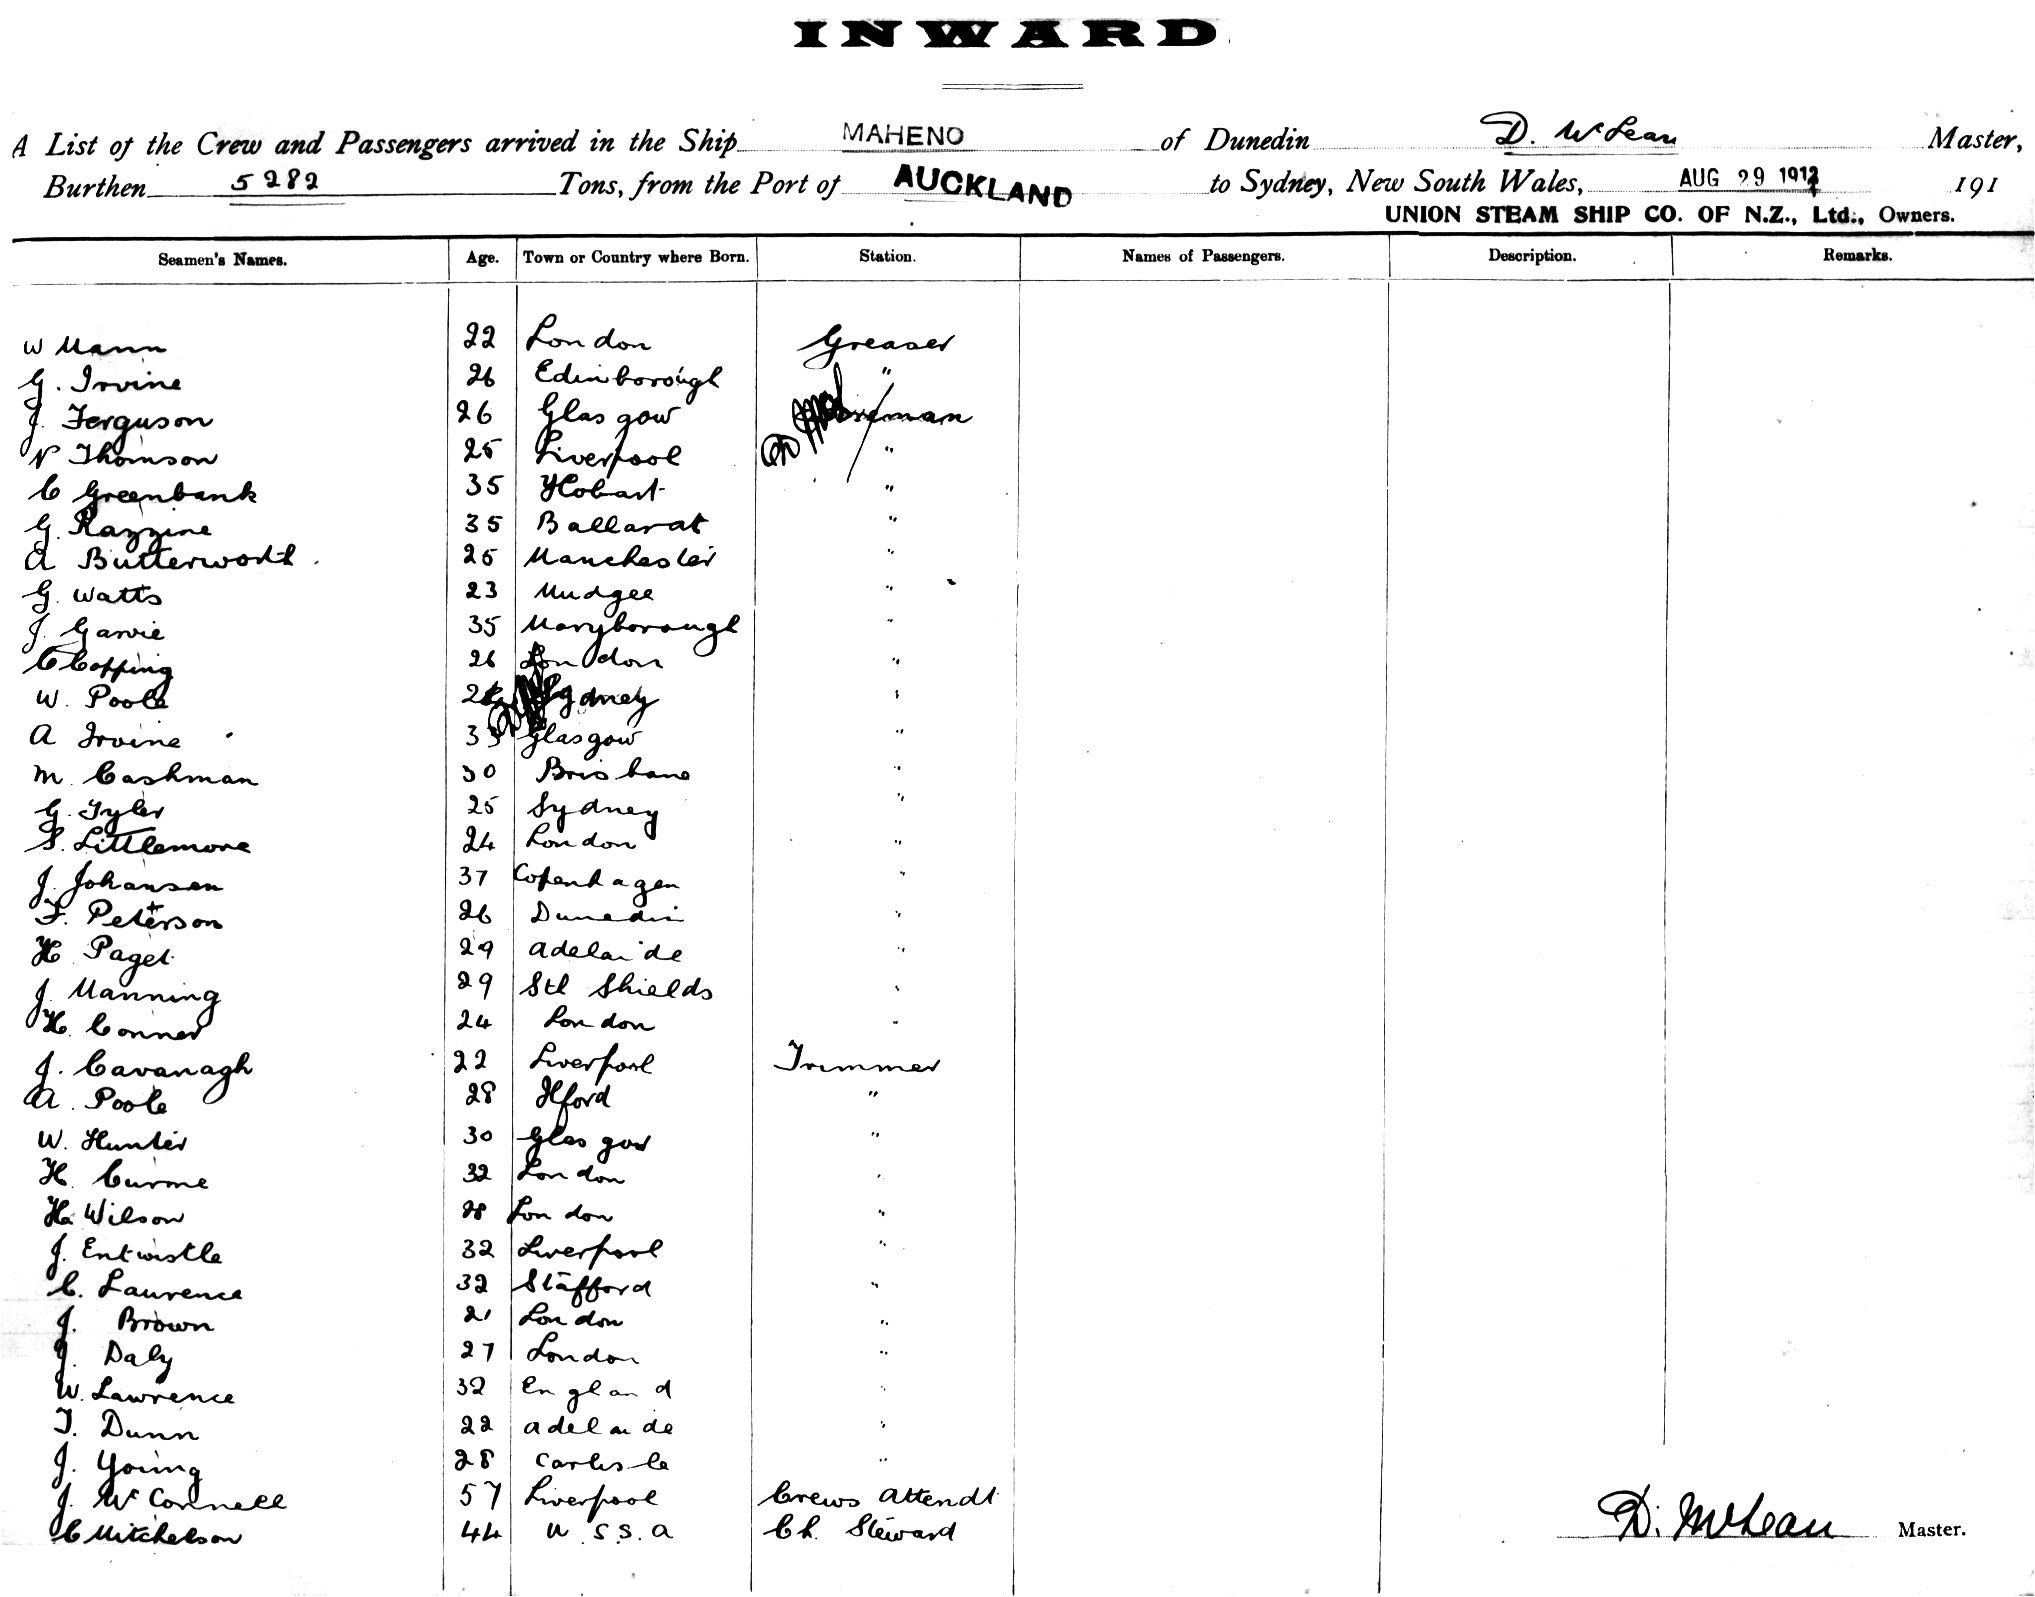 INWARD
A List of the Crew and Passengers arrived in the Ship MAHENO of Dunedin D. McLean Master,
Burthen 5282 Tons, from the Port of AUCKLAND to Sydney, New South Wales, AUG 29 1912 191
UNION STEAM SHIP CO. OF N.Z., Ltd., Owners.
Seamen's Names. Age. Town or Country where Born. Station. Names of Passengers. Description. Remarks.
W Mann 22 London Greaser
G. Irvine 26 Edinborough "
J. Ferguson 26 Glasgow Fireman
N Thomson 25 Liverpool "
C Greenbank 35 Hobart "
G. Razzine 35 Ballarat "
A Butterworth 25 Manchester "
G. Watts 23 Mudgee "
J. Garvie 35 Maryborough "
C Copping 26 London "
W. Poole Sydney "
A Irvine 33 Glasgow "
M. Cashman 30 Brisbane "
G. Tyler 25 Sydney "
S. Littlemore 24 London "
J. Johansen 37 Copenhagen "
F. Peterson 26 Dunedin "
H. Paget 29 Adelaide "
J. Manning 29 Sth Shields "
H. Conner 24 London "
J. Cavanagh 22 Liverpool Trimmer
A. Poole 28 Ilford "
W. Hunter 30 Glasgow "
H. Curme 32 London "
H. Wilson 28 London "
J. Entwistle 32 Liverpool "
C. Laurence 32 Stafford "
J. Brown 21 London "
J. Daly 27 London "
W. Lawrence 32 England "
T. Dunn 22 Adelaide "
J. Young 28 Carlisle "
J. McConnell 57 Liverpool Crews Attendt
C Mitchelson 44 U.S.S.A Ch. Steward
D. McLean Master.